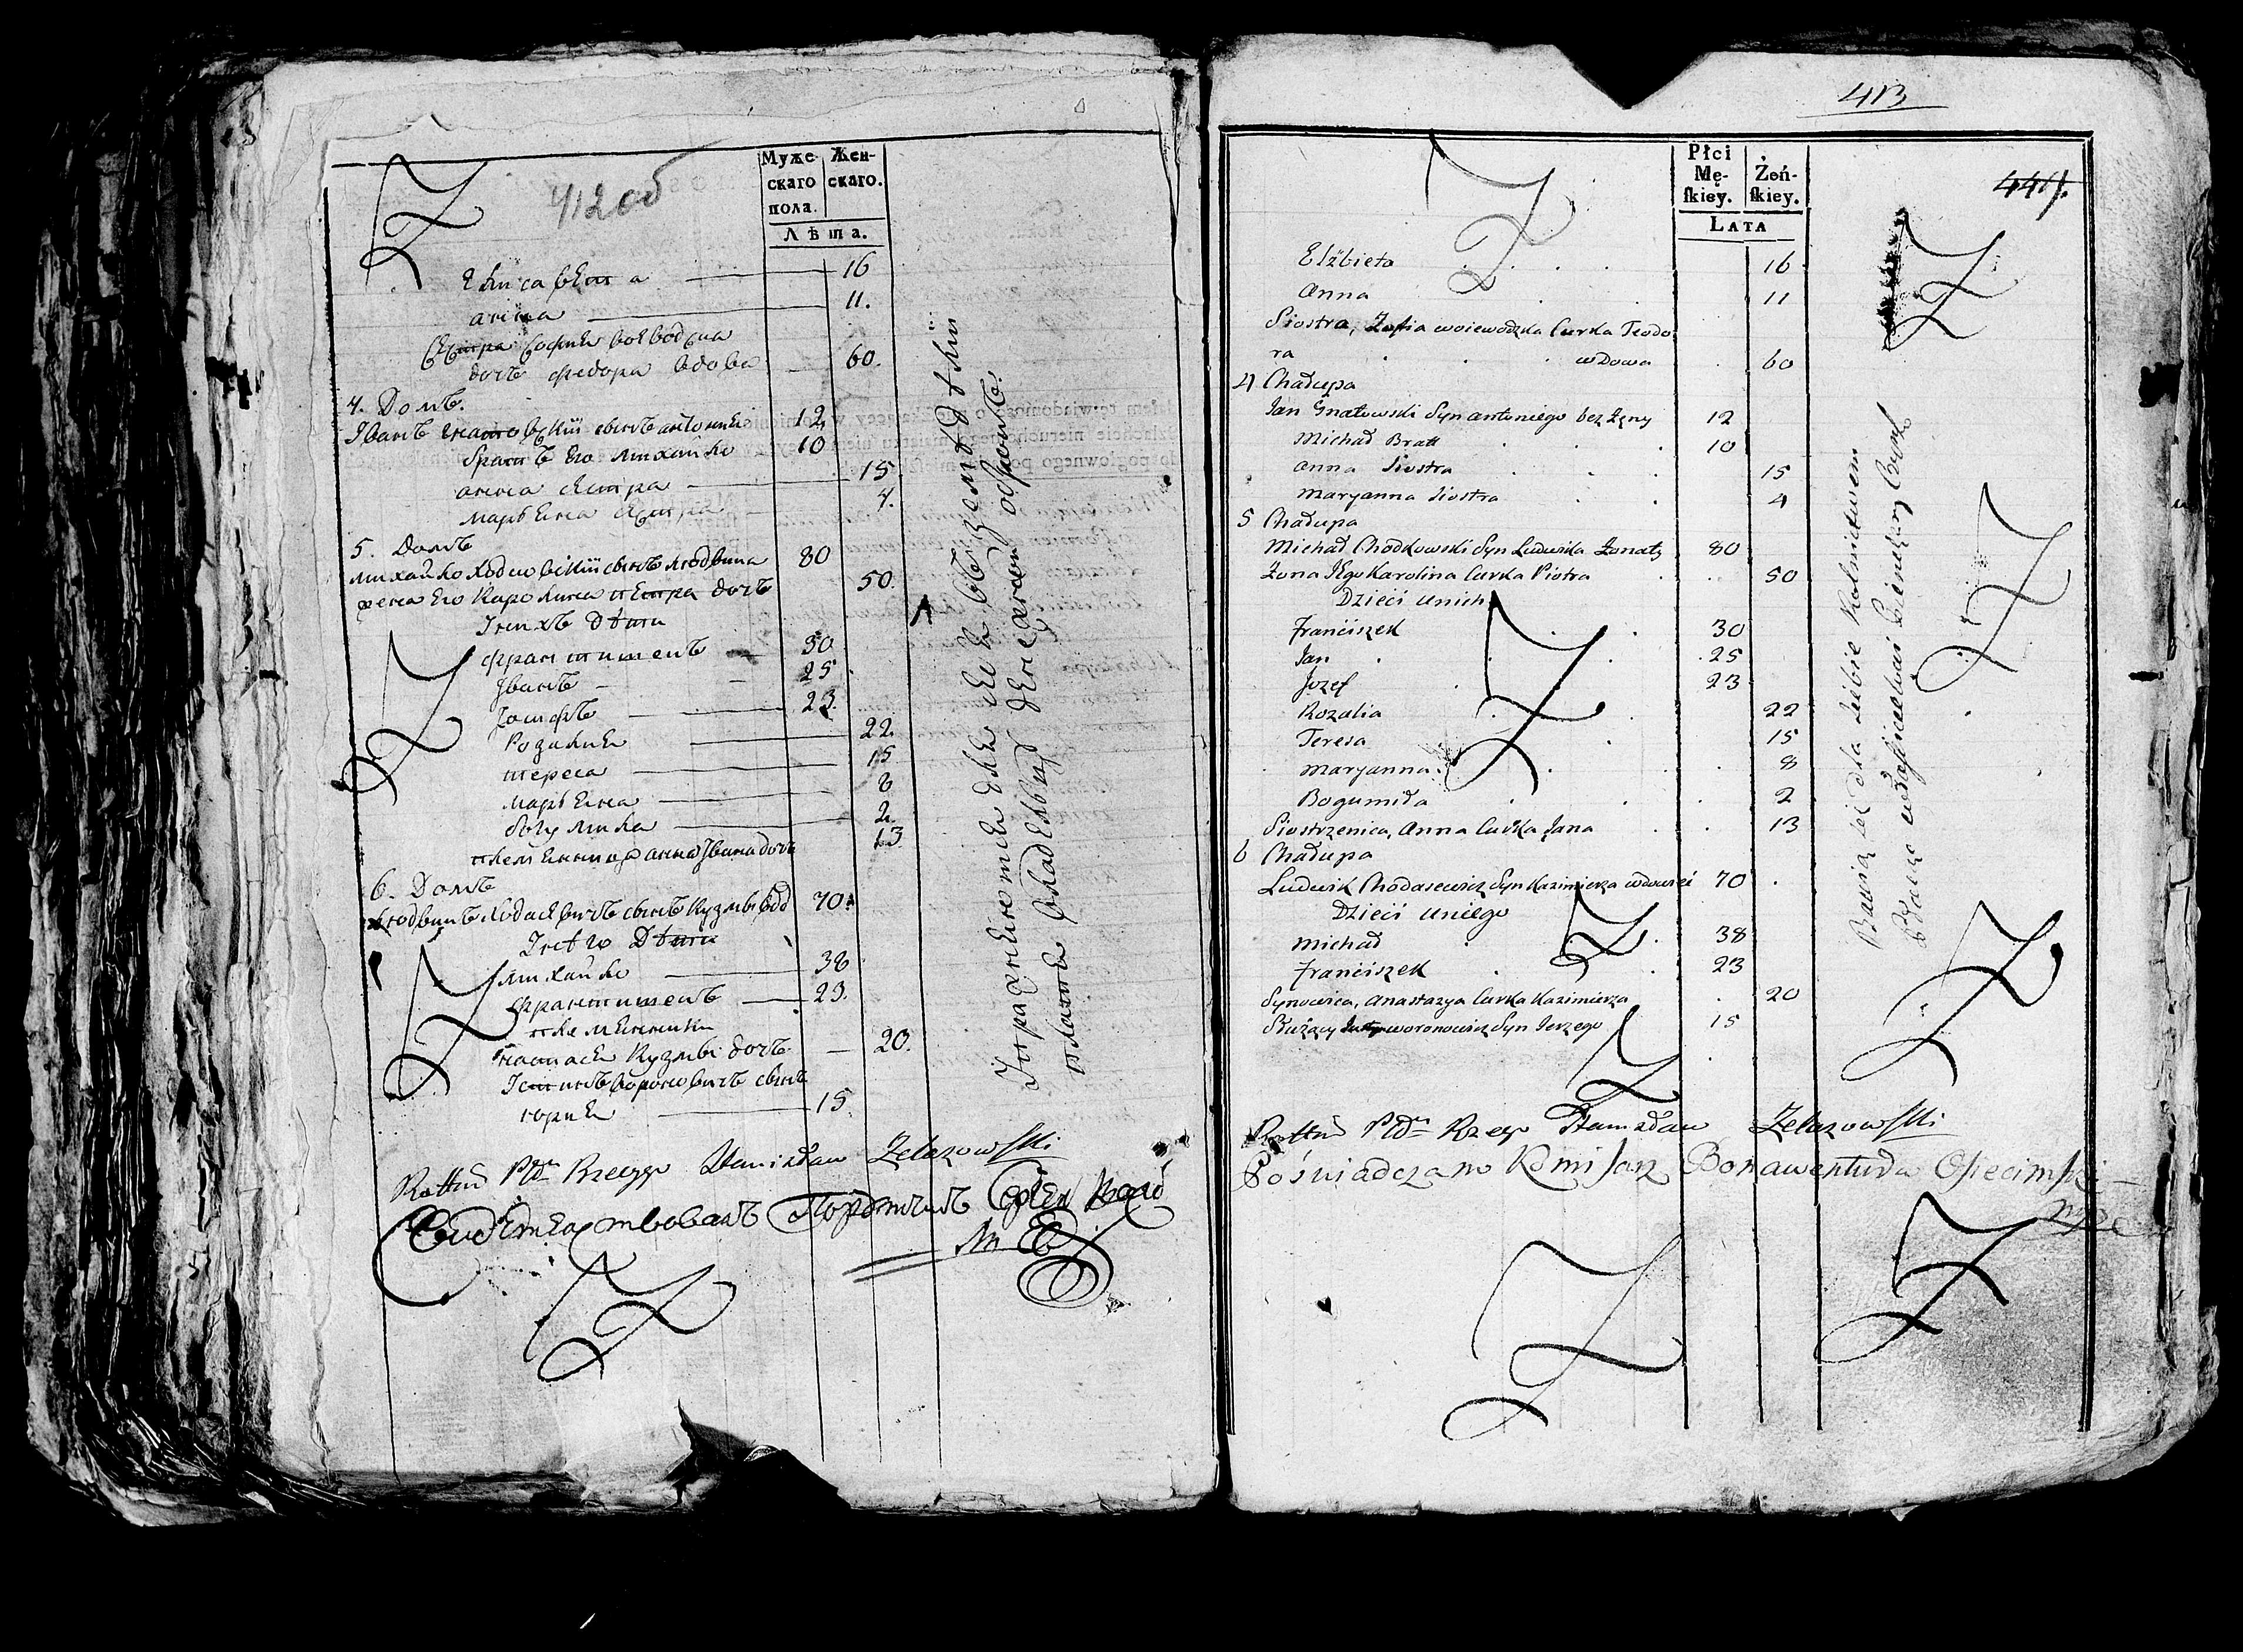 412 об
Муже- Жен-
скаго скаго.
пола.
Лѣта.
Елисавета 16
анна 11.
Сестра София воеводска
дочь федора вдова 60.
4. Домъ.
Iванъ гнатовскiй сынъ антония 12
братъ его михайло 10
анна сестра 15
марьянна сестра 4.
5. Домъ
михайло ходковскiй сынъ людвика 80
жена его Каролина петра дочь 50.
У нихъ дѣти
францишекъ 30
Iванъ 25
Iосифъ 23.
Розалия 22.
тереса 15
марьянна 8
богумила 2.
племянница анна Iвана дочь 13
6. Домъ
людвикъ ходасевичъ сынъ Кузмы вдо 70.
У него Дѣти
михайло 38
францишекъ 23.
племянники
настася Кузмы дочь 20.
Iстинъ вороновичъ сынъ
юрия 15
Stanisław Żelazowski
Свидѣтельствовалъ
413
441.
Płci
Mę- Żeń-
ſkiey. ſkiey.
LATA
Elżbieta 16
Anna 11
Siostra, Zofia woiewodzka Curka Teodo
ra wdowa 60
4 Chałupa
Jan Gnatowski Syn antoniego bez Żony 12
Michał Bratt 10
anna Siostra 15
Maryanna Siostra 4
5 Chałupa
Michał Chodkowski Syn Ludwika Żonaty 80
Żona Jego Karolina Curka Piotra 50
Dzieci unich
Franciszek 30
Jan 25
Jozef 23
Rozalia 22
Teresa 15
Maryanna 8
Bogumiła 2
Siostrzenica, Anna Curka Jana 13
6 Chałupa
Ludwik Chodasewicz Syn Kazimierza wdowiec 70
Dzieci uniego
Michał 38
Franciszek 23
Synowica, Anastazya Curka Kazimierza 20
Służący woronowicz Syn Jerzego 15
Bawią się dla siebie Rolnictwem
Stanisław Żelazowski
Poświadczam Bonawentura